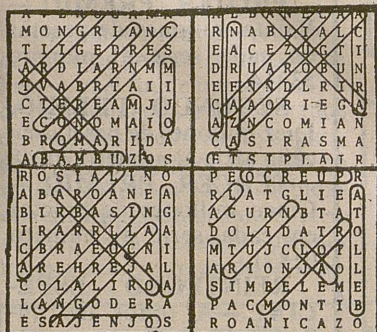 M O N G R I A N C
T I I G E D R E S
A R D I A R N M M
I T A B R T A I I
C T E R E A M J J
E C O N O M A I O
B R O M A R I D A
A B A M B U Z O S
R N A B L I A L C
E A C E Z U G T I
D R U A R O B U N
C A A O R I E G A
A Z N C O M I A N
C A S I R A S M A
E T S I P L A I R
R O S I A L I N O
A B A R O A N E A
B I R B A S I N G
I R A R R L L A A
C B R A E O C N I
A R E H R E J A L
C O L A L I R O A
L A N G O D E R A
E S A J E N J O S
P E O C R E U P R
R L A T G L I E A
A C U R N B T A T
D O L I D A T R O
M T U J C L O P L
A R I O N J A O L
S I M B E L E M E
P A C M O N T I B
R O A N I C A Z O